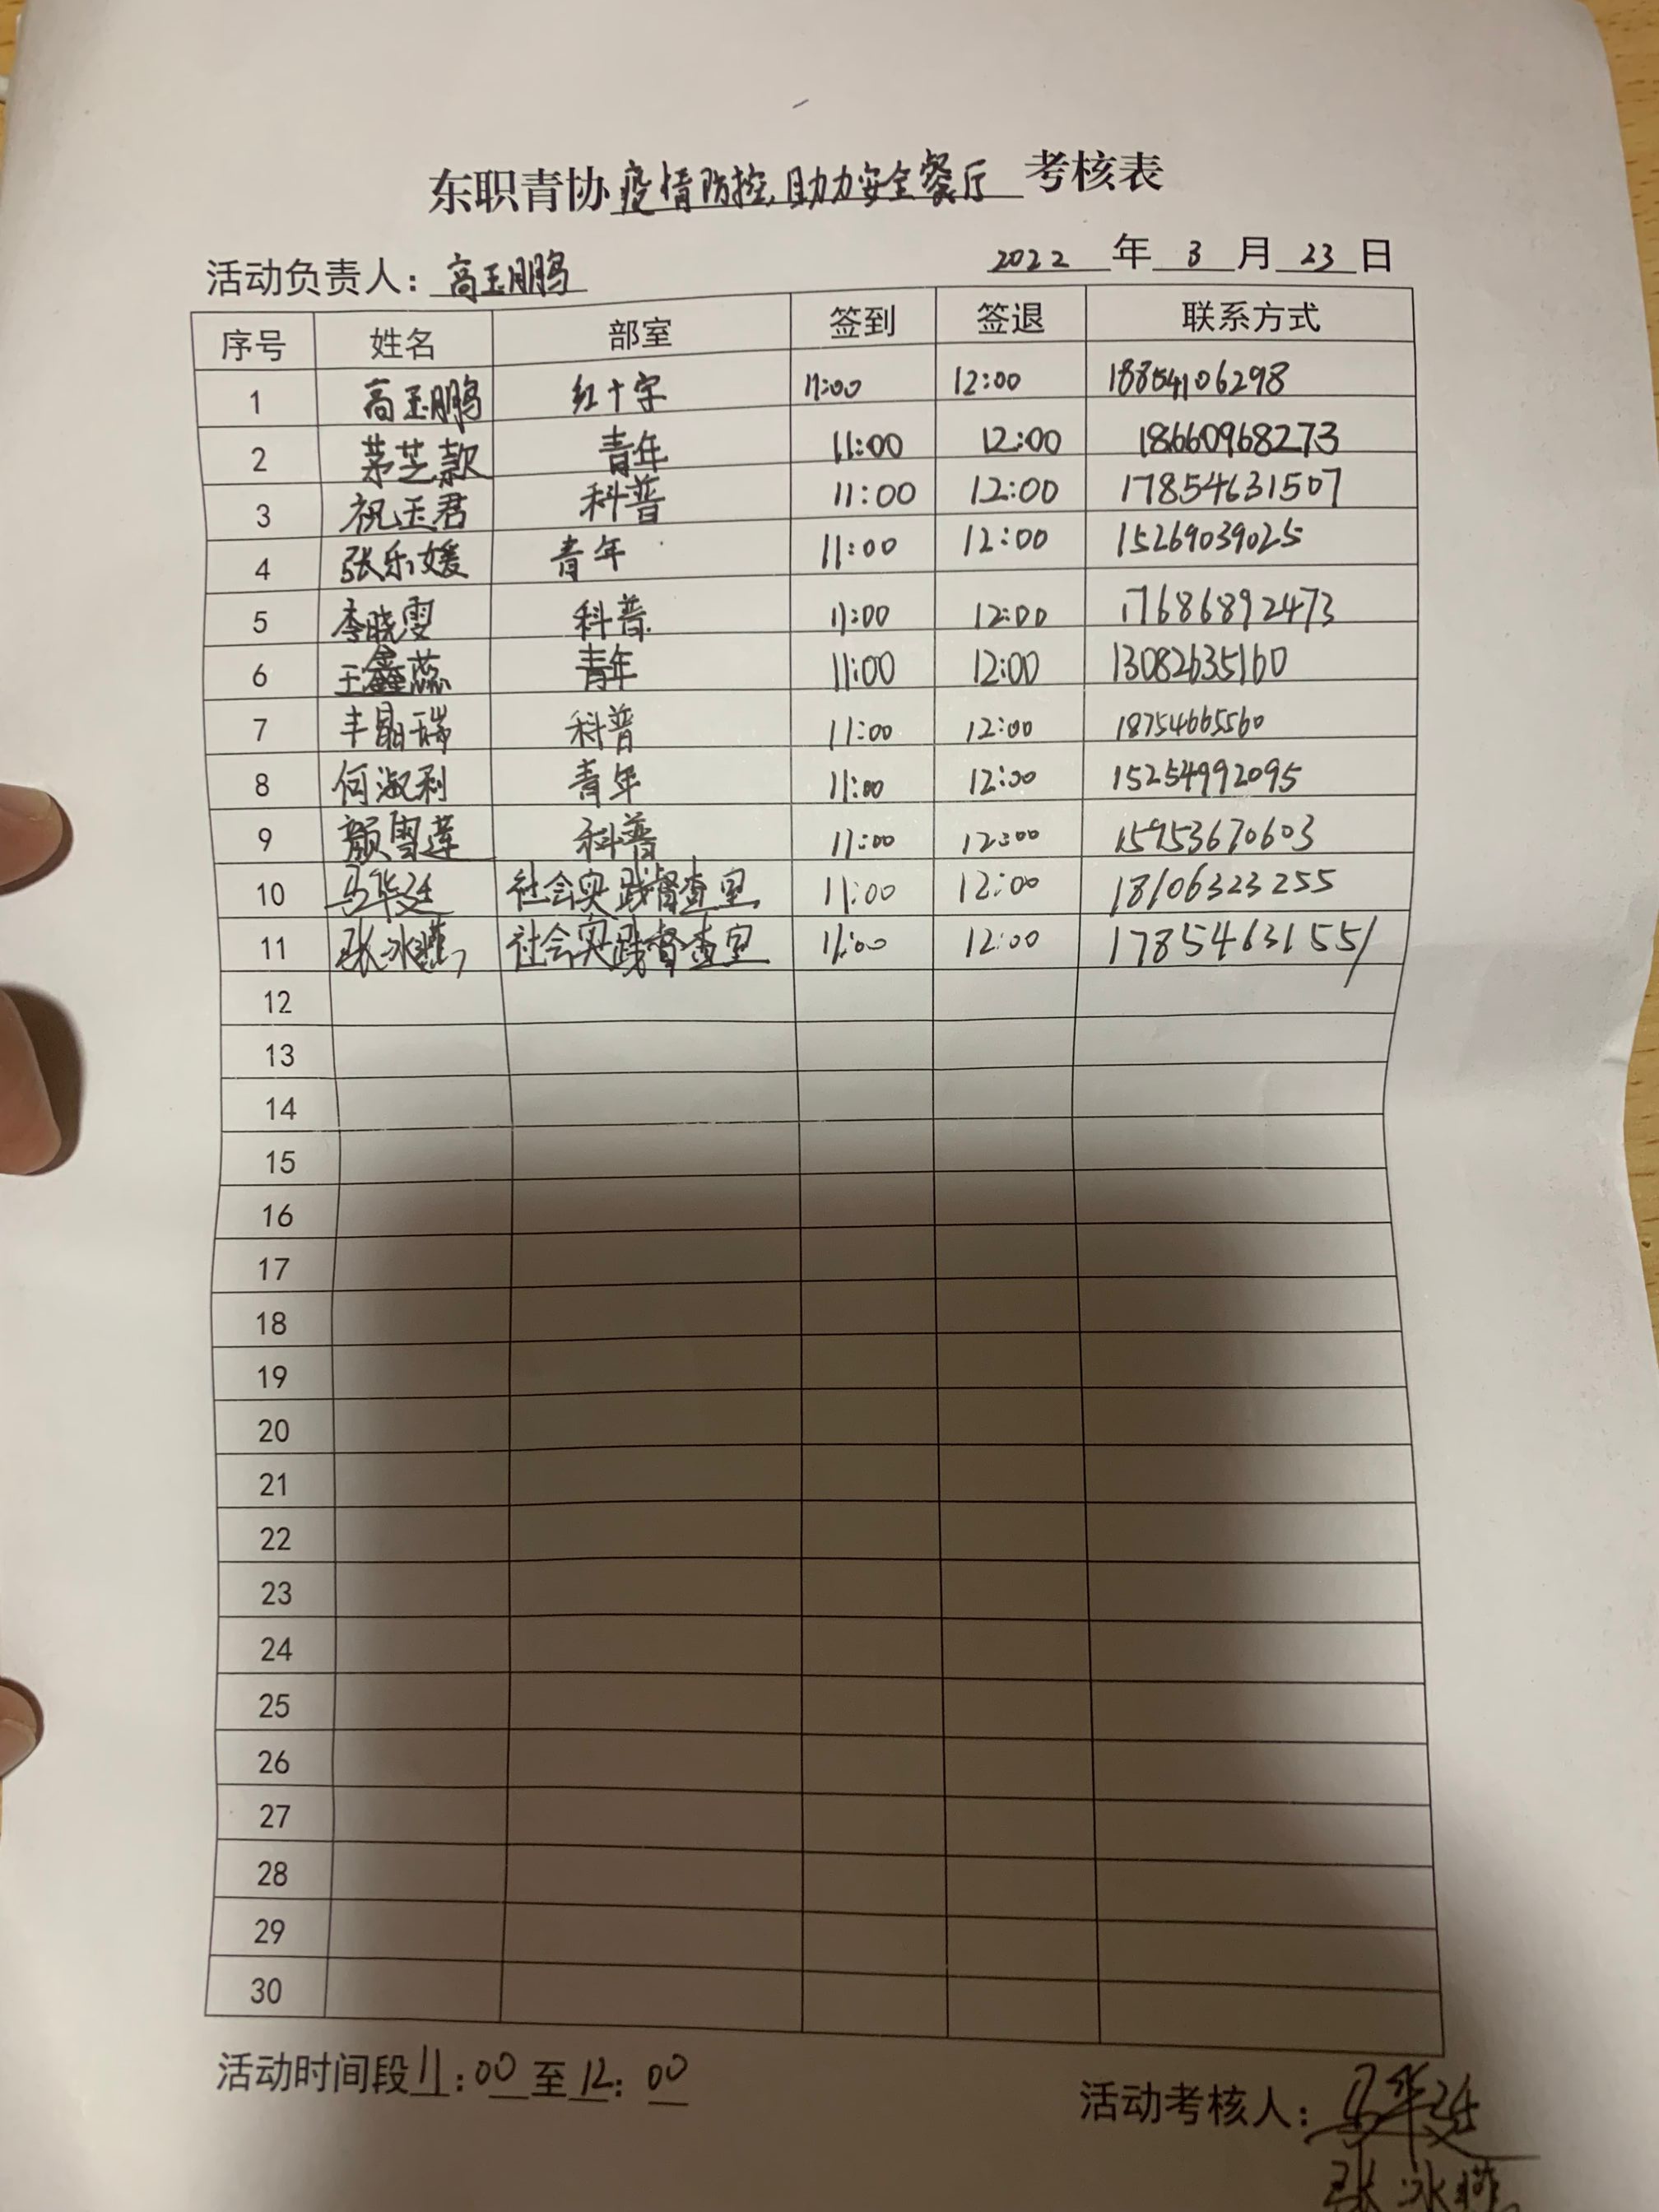 东职青协疫情防控,助力安全餐厅 考核表
活动负责人：高玉鹏 2022 年 3 月 23 日
序号 姓名 部室 签到 签退 联系方式
1 高玉鹏 红十字 11:00 12:00 18854106298
2 茅芝款 青年 11:00 12:00 18660968273
3 祝玉君 科普 11:00 12:00 17854631507
4 张乐媛 青年 11:00 12:00 15269039025
5 李晓雯 科普 11:00 12:00 17686892473
6 王鑫蕊 青年 11:00 12:00 13082635160
7 丰晶瑞 科普 11:00 12:00 18754665560
8 何淑利 青年 11:00 12:00 15254992095
9 颜雪莲 科普 11:00 12:00 15953670603
10 马华廷 社会实践督查室 11:00 12:00 18106323255
11 张冰燕 社会实践督查室 11:00 12:00 17854631551
12
13
14
15
16
17
18
19
20
21
22
23
24
25
26
27
28
29
30
活动时间段11:00至12:00
活动考核人：马华廷
张冰燕